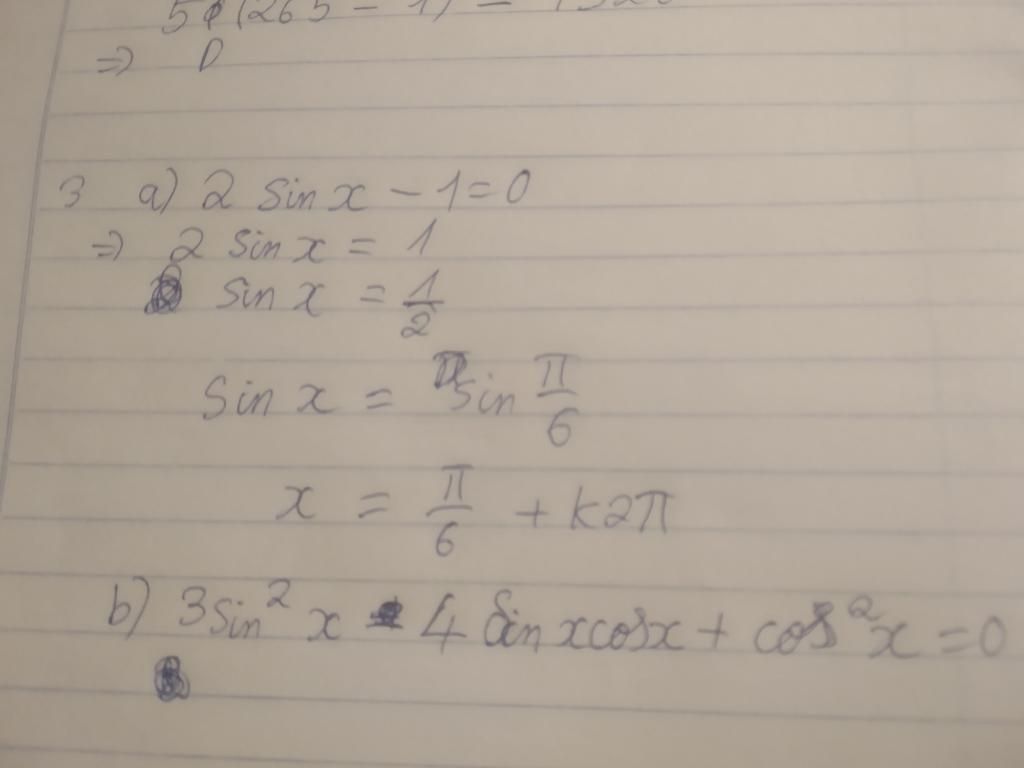 => D
3 a) 2 sin x - 1 = 0
=> 2 sin x = 1
sin x = 1/2
sin x = sin π/6
x = π/6 + k2π
b) 3 sin² x - 4 sin x cos x + cos² x = 0